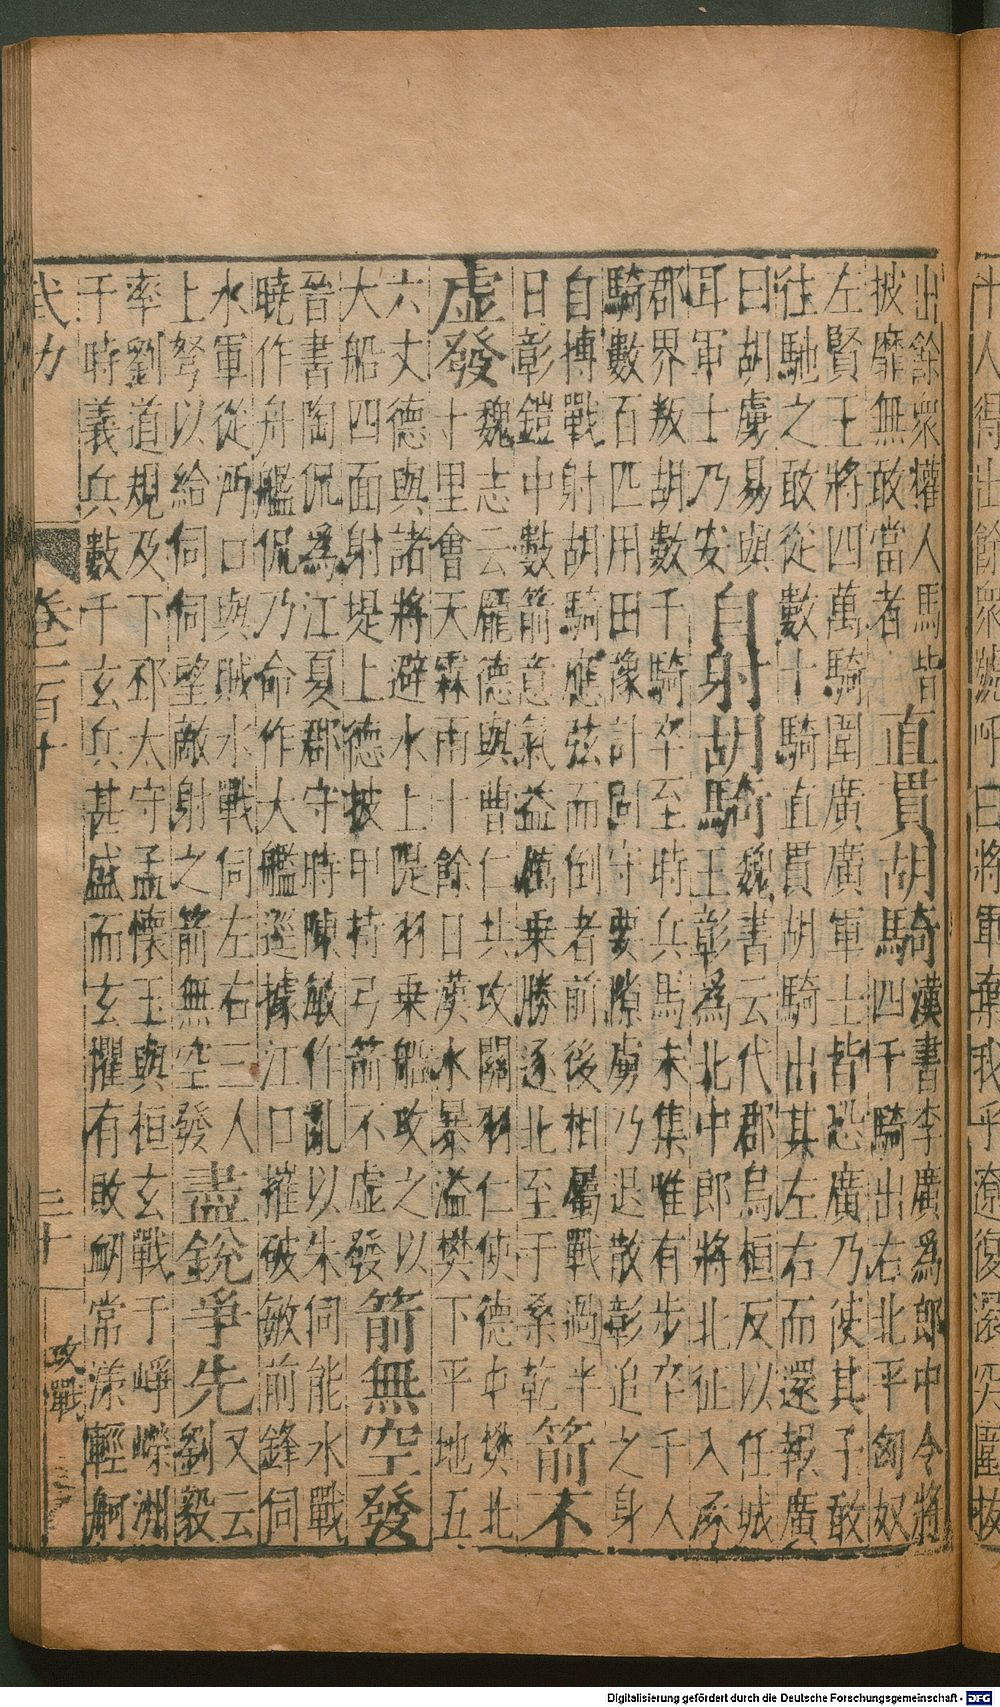 出餘衆權人馬皆
披靡無敢當者
直貫胡騎
漢書李廣爲郎中令將
四千騎出右北平匈奴
左賢王將四萬騎圍廣廣軍士皆恐廣乃使其子敢
往馳之敢從數十騎直貫胡騎出其左右而還報廣
曰胡虜易與
耳軍士乃安
自射胡騎
魏書云代郡烏桓反以任城
王彰爲北中郎將北征入涿
郡界叛胡數千騎卒至時兵馬未集唯有步卒千人
騎數百匹用田豫計固守要隙虜乃退散彰追之身
自搏戰射胡騎應弦而倒者前後相屬戰過半
日彰鎧中數箭意氣益厲乘勝逐北至于桑乾
箭不
虛發
魏志云龐德與曹仁共攻關羽仁使德屯樊北
十里會天霖雨十餘日漢水暴溢樊下平地五
六丈德與諸將避水上隄羽乘船攻之以
大船四面射堤上德披甲持弓箭不虛發
箭無空發
晉書陶侃爲江夏郡守時陳敏作亂以朱伺能水戰
曉作舟艦侃乃命作大艦逕據江口摧破敏前鋒伺
水軍從沔口與賊水戰伺左右三人
上弩以給伺伺望敵射之箭無空發
盡銳爭先
又云
劉毅
率劉道規及下邳太守孟懷玉與桓玄戰于崢嶸洲
于時義兵數千玄兵甚盛而玄懼有敗衂常漾輕舸
武功
卷二百十
三十
攻戰
Digitalisierung gefördert durch die Deutsche Forschungsgemeinschaft - DFG